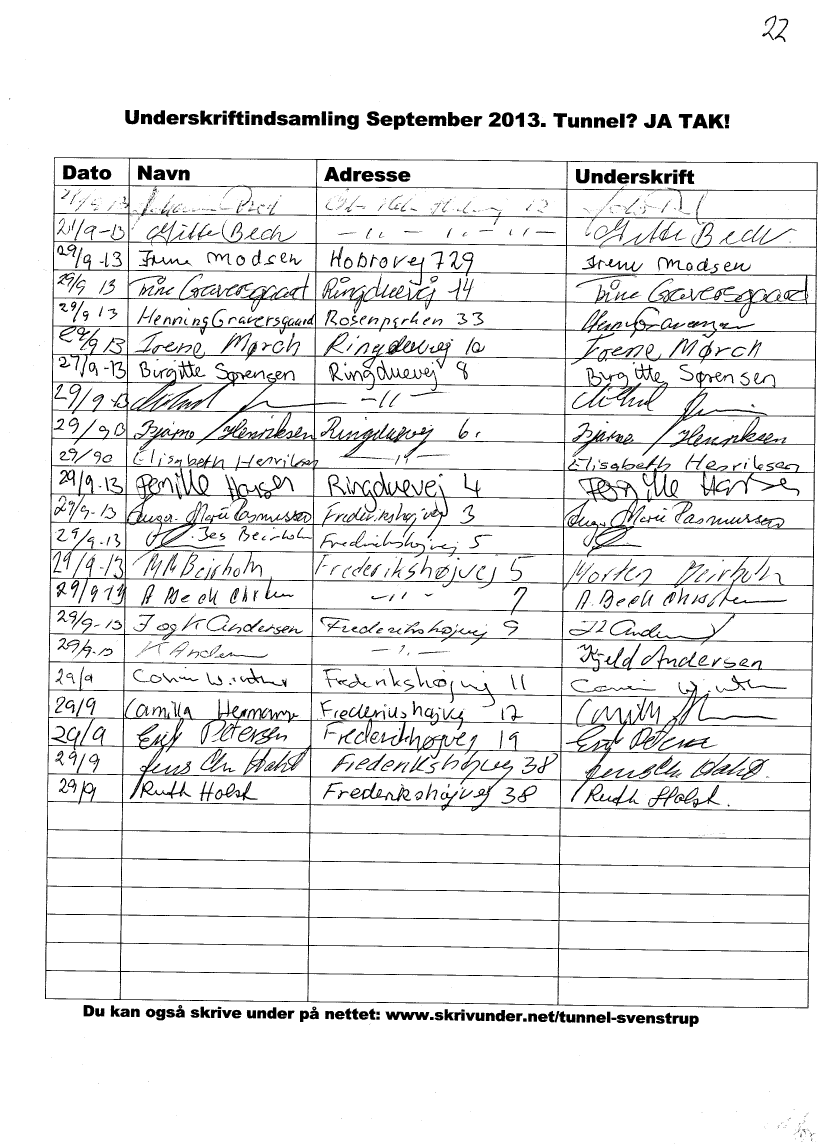 22
Underskriftindsamling September 2013. Tunnel? JA TAK!
Dato Navn Adresse Underskrift
29/9-13 Gitte Bech - 11 - 11 - 11 - Gitte Bech
29/9-13 Irene Madsen Hobrovej 729 Irene Madsen
29/9 13 Trine Graversgaard Ringduevej 14 Trine Graversgaard
29/9 13 Henning Graversgaard Rosenparken 33
29/9 13 Irene Mørch Ringduevej 10 Irene Mørch
27/9-13 Birgitte Sørensen Ringduevej 8 Birgitte Sørensen
29/9-13 - 11 -
29/9 13 Bjarne Henriksen Ringduevej 6. Bjarne Henriksen
29/90 Elisabeth Henriksen - 11 - Elisabeth Henriksen
29/9-13 Pernille Hansen Ringduevej 4 Pernille Hansen
29/9-13 Inger-Marie Rasmussen Frederikshøjvej 3 Inger Marie Rasmussen
29/9-13 Jes Beirholm Frederikshøjvej 5
29/9-13 MM Beirholm Frederikshøjvej 5 Morten Beirholm
29/9 13 A Bech - 11 - 7 A. Bech
29/9-13 J og K Andersen Frederikshøjvej 9
29/9-13 K Andersen - 11 - Kjeld Andersen
29/9 Frederikshøjvej 11
29/9 Camilla Frederikshøjvej 12
29/9 Erik Petersen Frederikhøjvej 19 Erik Petersen
29/9 Jens Chr Frederikshøjvej 38 Jens Chr
29/9 Ruth Holst Frederikshøjvej 38 Ruth Holst.
Du kan også skrive under på nettet: www.skrivunder.net/tunnel-svenstrup